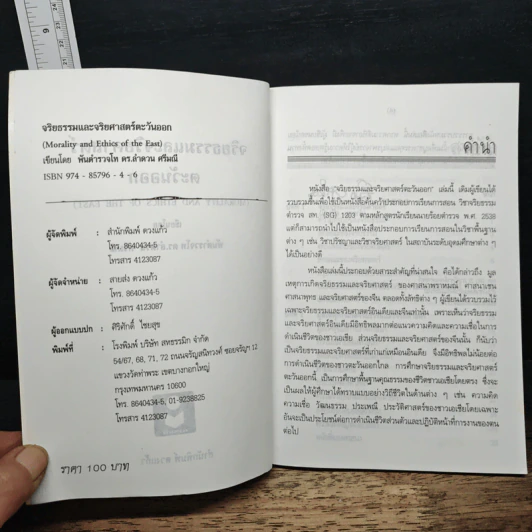 จริยธรรมและจริยศาสตร์ตะวันออก
(Morality and Ethics of the East)
เขียนโดย พันตำรวจโท ดร.ลำดวน ศรีมณี
ISBN 974 - 85796 - 4 - 6
ผู้จัดพิมพ์ : สำนักพิมพ์ ดวงแก้ว
โทร. 8640434-5
โทรสาร 4123087
ผู้จัดจำหน่าย : สายส่ง ดวงแก้ว
โทร. 8640434-5
โทรสาร 4123087
ผู้ออกแบบปก : สิริศักดิ์ ไชยสุข
พิมพ์ที่ : โรงพิมพ์ บริษัท สหธรรมิก จำกัด
54/67, 68, 71, 72 ถนนจรัญสนิทวงศ์ ซอยจรัญฯ 12
แขวงวัดท่าพระ เขตบางกอกใหญ่
กรุงเทพมหานคร 10600
โทร. 8640434-5, 01-9238825
โทรสาร 4123087
ราคา 100 บาท
คำนำ
หนังสือ "จริยธรรมและจริยศาสตร์ตะวันออก" เล่มนี้ เดิมผู้เขียนได้
รวบรวมขึ้นเพื่อใช้เป็นหนังสือค้นคว้าประกอบการเรียนการสอน วิชาจริยธรรม
ตำรวจ สท. (SG) 1203 ตามหลักสูตรนักเรียนนายร้อยตำรวจ พ.ศ. 2538
แต่ก็สามารถนำไปใช้เป็นหนังสือประกอบการเรียนการสอนในวิชาพื้นฐาน
ต่าง ๆ เช่น วิชาปรัชญาและวิชาจริยศาสตร์ ในสถาบันระดับอุดมศึกษาต่าง ๆ
ได้เป็นอย่างดี
หนังสือเล่มนี้ประกอบด้วยสาระสำคัญที่น่าสนใจ คือได้กล่าวถึง มูล
เหตุการเกิดจริยธรรมและจริยศาสตร์ ของศาสนาพราหมณ์ ศาสนาเชน
ศาสนาพุทธ และจริยศาสตร์ของจีน ตลอดทั้งลัทธิต่าง ๆ ผู้เขียนได้รวบรวมไว้
เฉพาะจริยธรรมและจริยศาสตร์อินเดียและจีนเท่านั้น เพราะเห็นว่าจริยธรรม
และจริยศาสตร์อินเดียมีอิทธิพลมากต่อแนวความคิดและความเชื่อในการ
ดำเนินชีวิตของชาวเอเชีย ส่วนจริยธรรมและจริยศาสตร์ของจีนนั้น ก็นับว่า
เป็นจริยธรรมและจริยศาสตร์ที่เก่าแก่เหมือนอินเดีย จึงมีอิทธิพลไม่น้อยต่อ
การดำเนินชีวิตของชาวตะวันออกไกล การศึกษาจริยธรรมและจริยศาสตร์
ตะวันออกนี้ เป็นการศึกษาพื้นฐานคุณธรรมของชีวิตชาวเอเชียโดยตรง ซึ่งจะ
เป็นผลให้ผู้ศึกษาได้ทราบแบบอย่างวิถีชีวิตในด้านต่าง ๆ เช่น ความคิด
ความเชื่อ วัฒนธรรม ประเพณี ประวัติศาสตร์ของชาวเอเชียโดยเฉพาะ
อันจะเป็นประโยชน์ต่อการดำเนินชีวิตส่วนตัวและปฏิบัติหน้าที่การงานของตน
ต่อไป